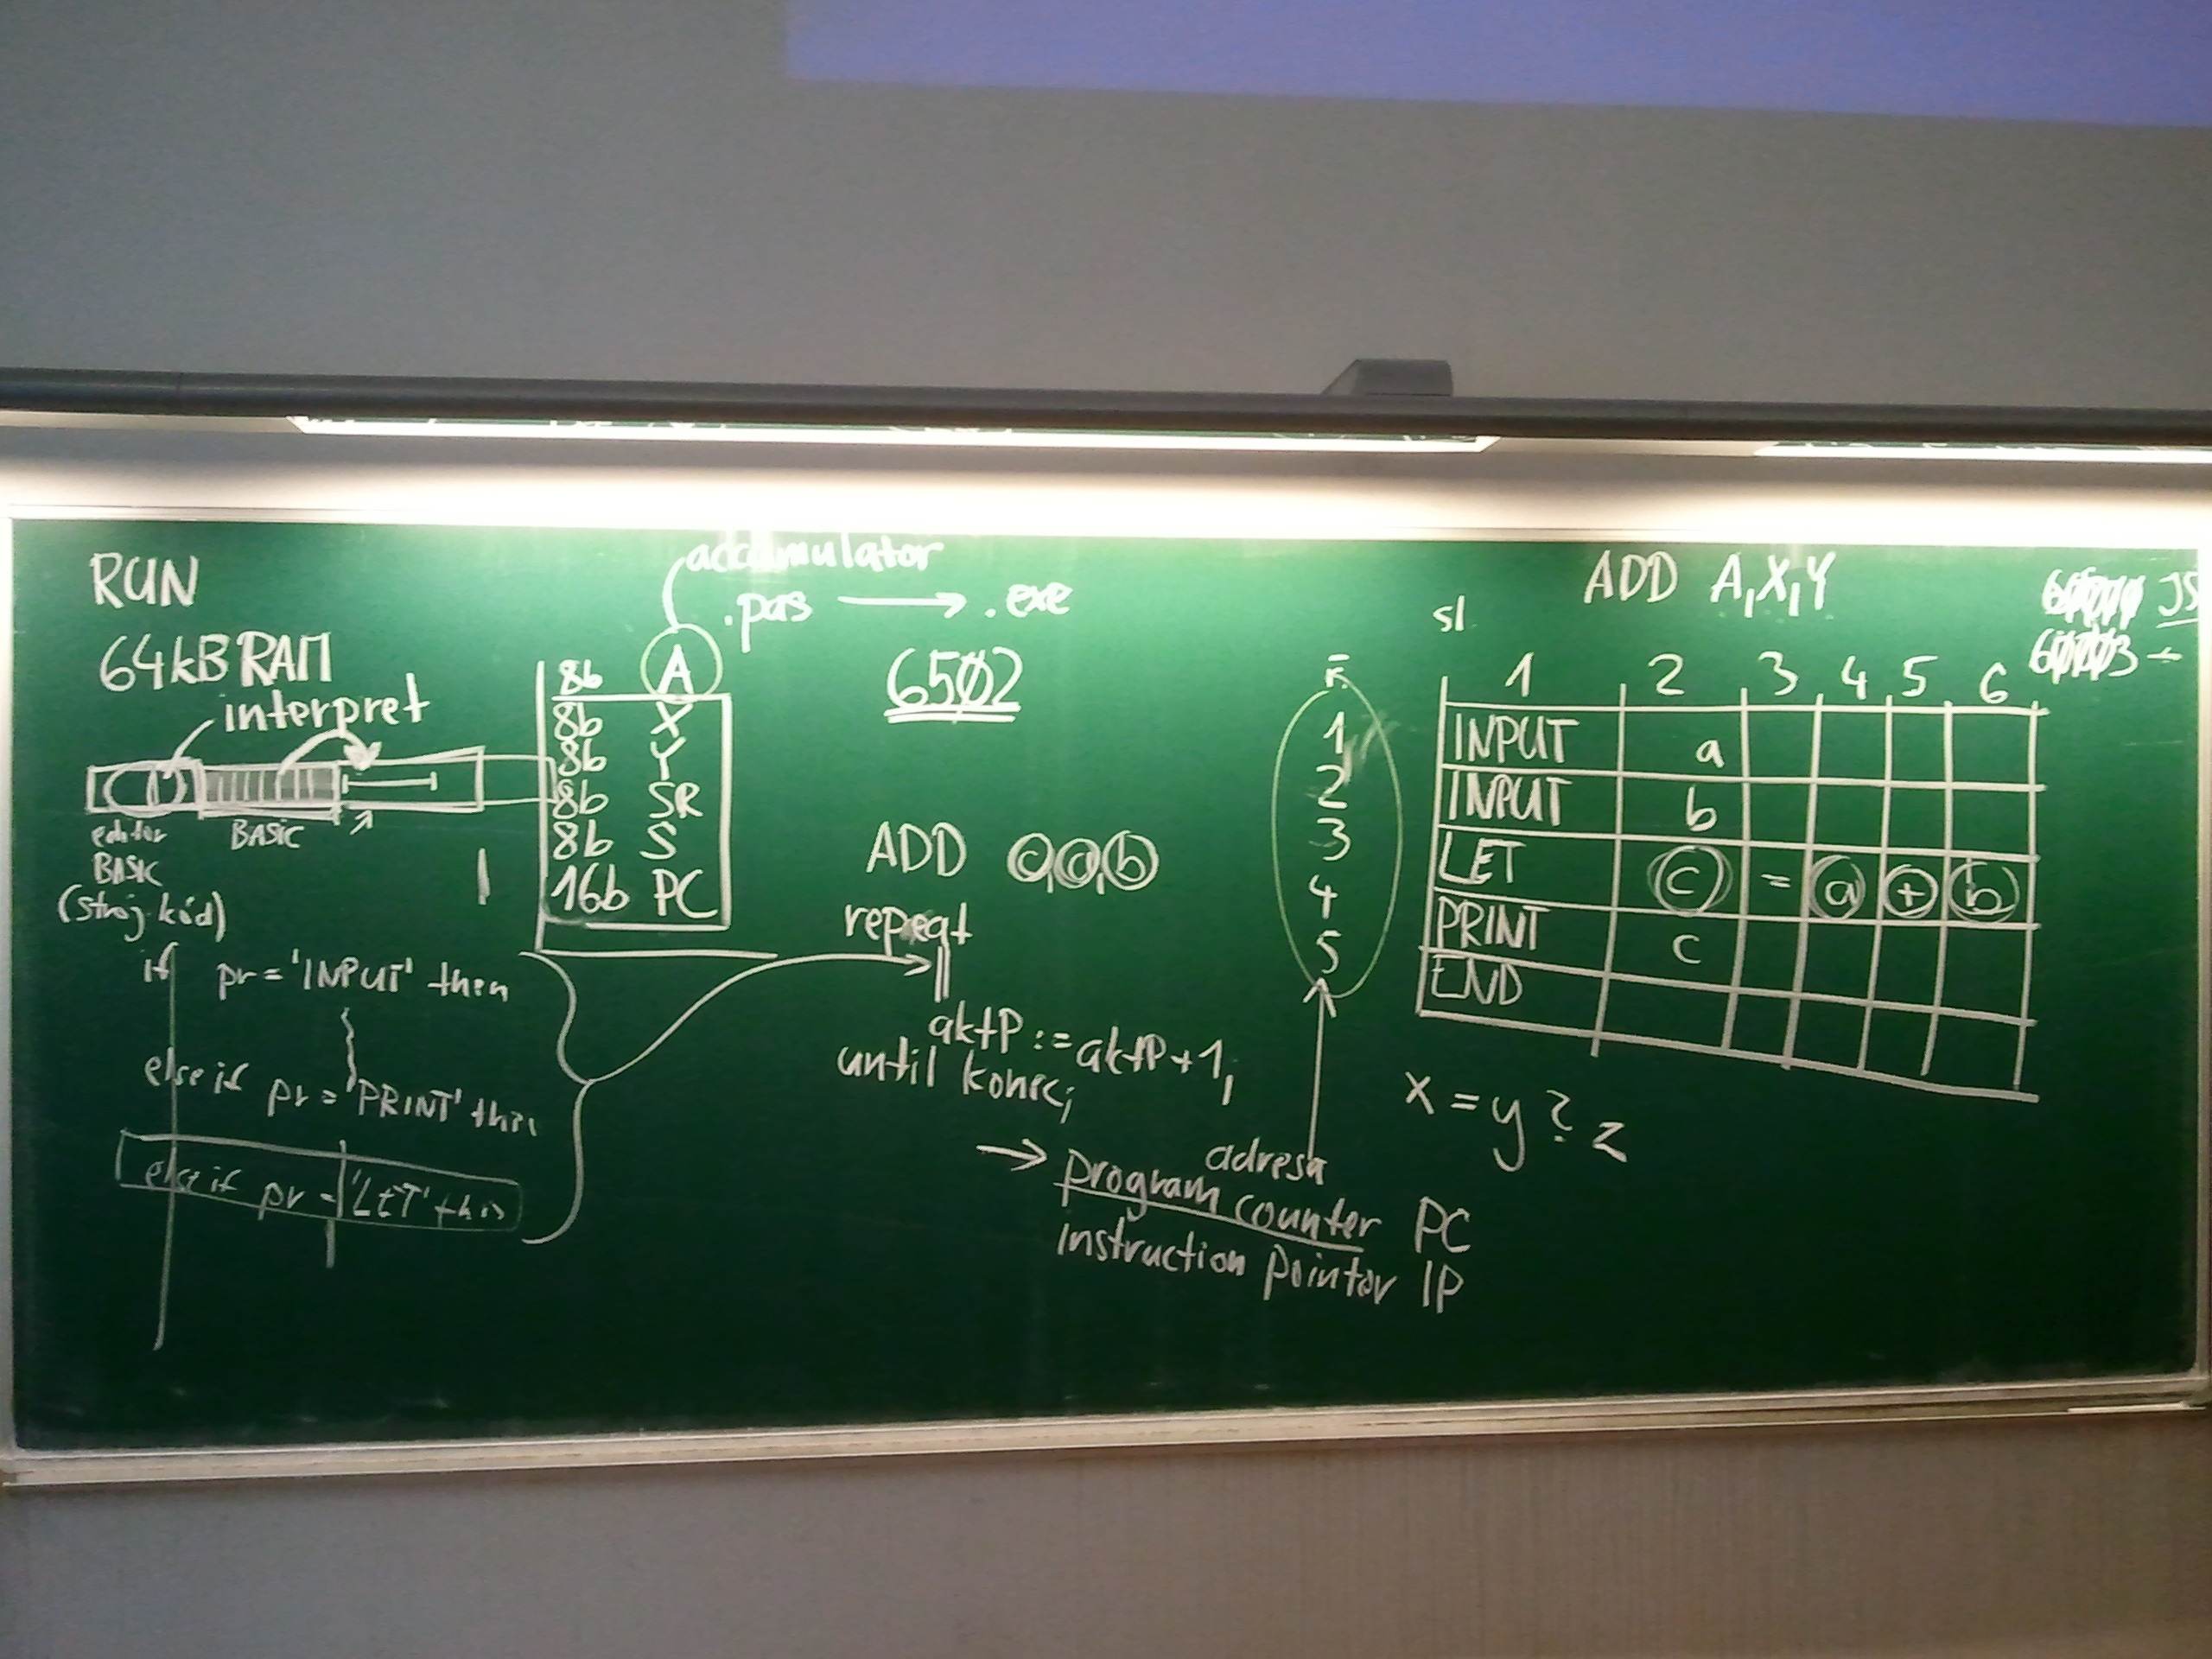 RUN
64kB RAM
interpret
editor
BASIC
(stroj. kód)
BASIC
accumulator
.pas → .exe
8b A
8b X
8b Y
8b SR
8b S
16b PC
6502
ADD c,a,b
repeat
aktP := aktP+1;
until konec;
if pr = 'INPUT' then
else if pr = 'PRINT' then
else if pr = 'LET' then
→ program counter PC
instruction pointer IP
adresa
ř.
1
2
3
4
5
sl
ADD A,X,Y
1 2 3 4 5 6
INPUT a
INPUT b
LET c = a + b
PRINT c
END
x = y ? z
JS